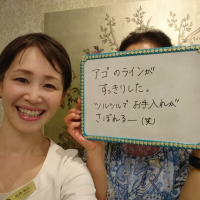 アゴのラインが
すっきりした。
ツルツルで お手入れが
さぼれるー(笑)